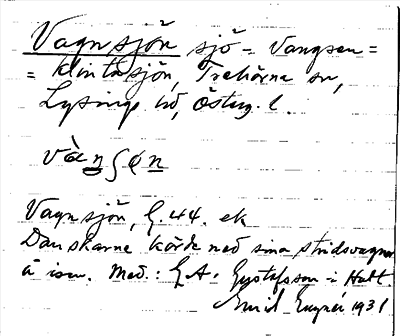 Vagnsjön sjö = Vangsen =
= Klintasjön, Trehörna sn,
Lysings hd, Östergl. l.
vàn̲ʃøn̲
Vagnsjön, G. 44. ek
Danskarne körde med sina stridsvagnar
å isen. Med.: G A. Gustafsson i Hult
Emil 1931